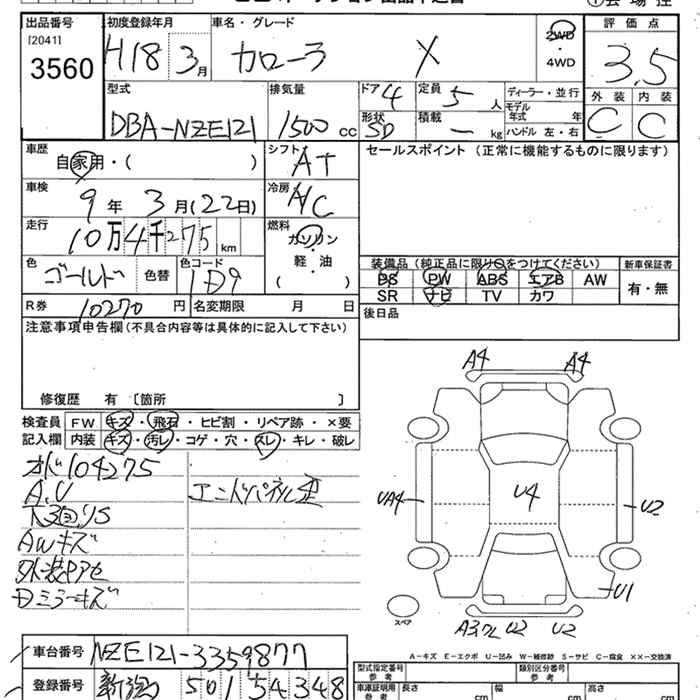 出品番号 初度登録年月 車名・グレード 2WD・4WD 評価点
[2041]
3560 H18 3月 カローラ X 3.5
外装 内装
C C
型式 排気量 ドア 定員 ディーラー・並行
DBA-NZE121 1500cc 4 5人 モデル年式 年
形状 積載 ハンドル 左・右
SD ー kg
車歴 自家用・( ) シフト AT セールスポイント(正常に機能するものに限ります)
車検 9年3月(22日) 冷房 A/C
走行 10万4千275km 燃料 ガソリン・軽・油( )
色 ゴールド 色替 色コード 1D9
装備品(純正品に限り○をつけてください) 新車保証書
PS PW ABS エアB AW 有・無
SR ナビ TV カワ
R券 10270円 名変期限 月 日 後日品
注意事項申告欄(不具合内容等は具体的に記入して下さい)
修復歴 有〔箇所 〕
検査員記入欄 FW キズ・飛石・ヒビ割・リペア跡・×要
内装 キズ・汚レ・コゲ・穴・スレ・キレ・破レ
オド104275
A.U エンドパネル歪
AWキズ
外装Pアセ
Dミラーキズ
A4 A4
UA4 U4 U2
U1
スペア U2 U2
A-キズ E-エクボ U-凹み W-補修跡 S-サビ C-腐食 ××-交換済
車台番号 NZE121-3359877
登録番号 新潟 501 54348
型式指定番号 参考 類別区分番号 参考
車庫証明用 参考 長さ cm 幅 cm 高さ cm